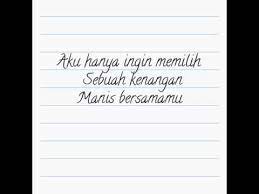 Aku hanya ingin memilih
Sebuah kenangan
Manis bersamamu